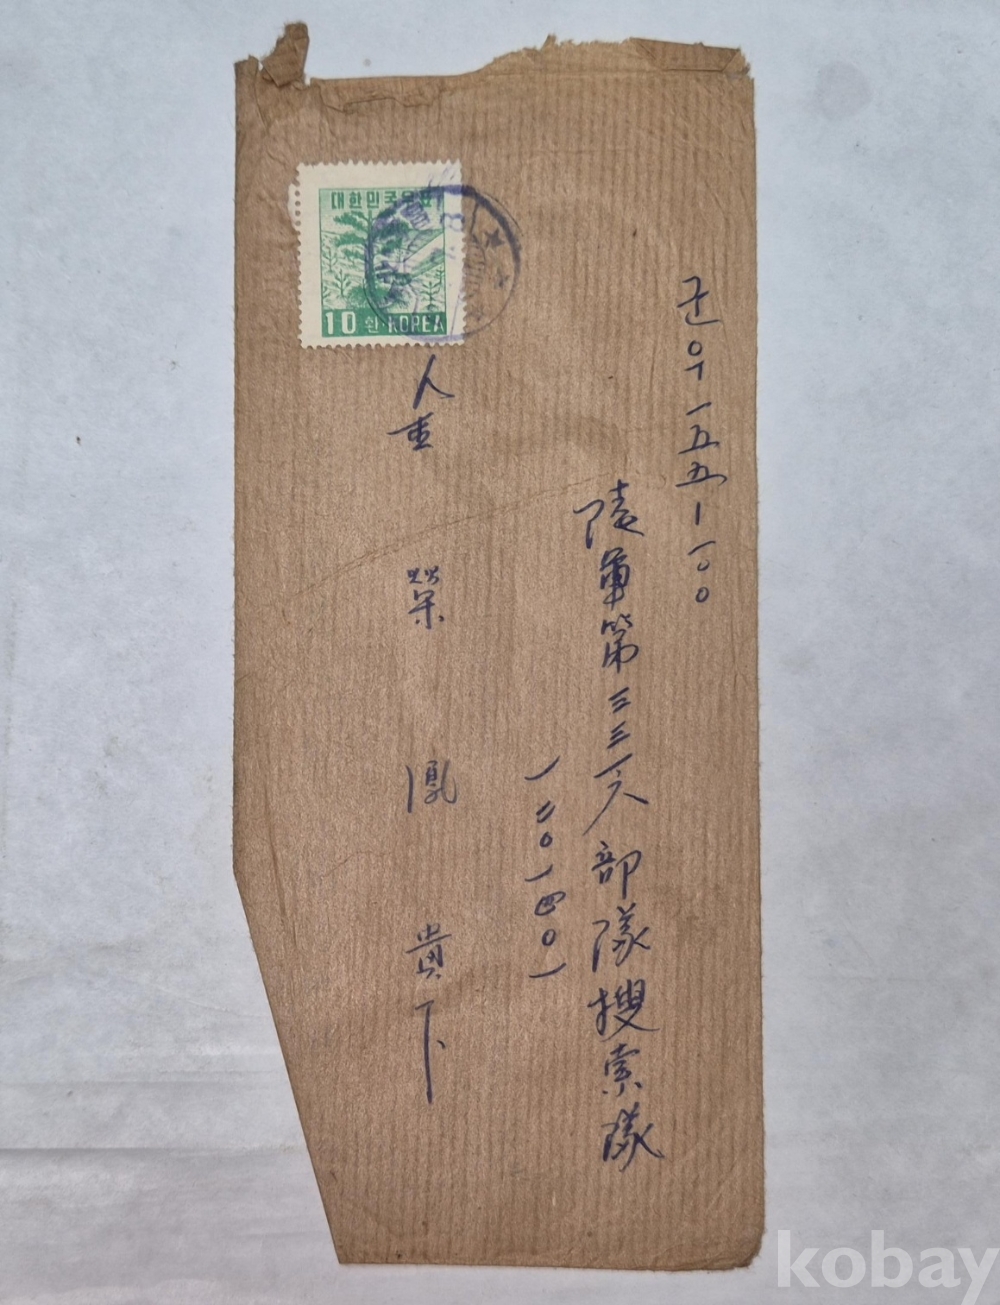 대한민국우표
10 환·KOREA
군우 一五五-一〇〇
陸軍第三三一八部隊搜索隊
一二〇一四〇一
金 榮 鳳 貴下
kobay